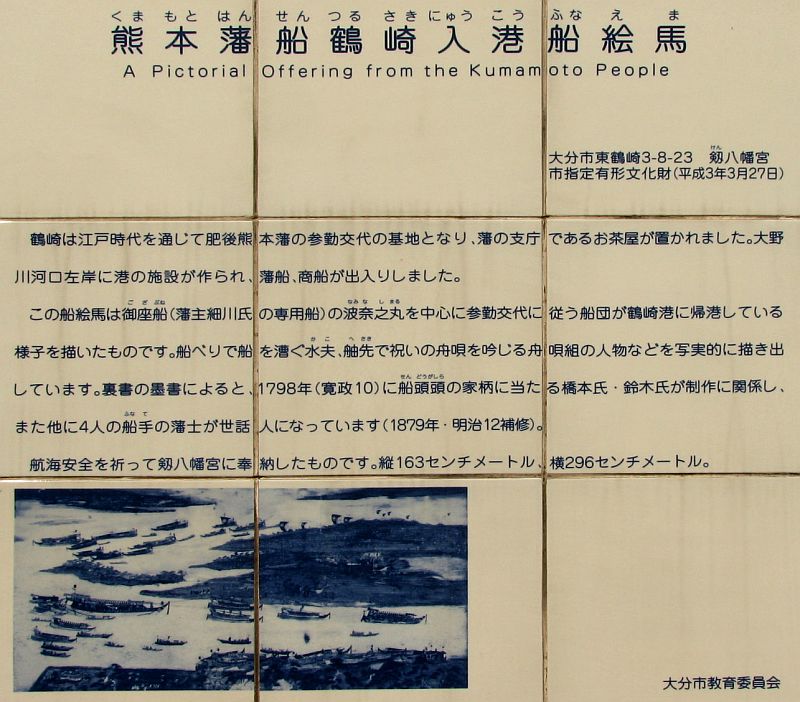 くまもとはん せんつるさきにゅうこう ふなえま
熊本藩船鶴崎入港船絵馬
A Pictorial Offering from the Kumamoto People
けん
大分市東鶴崎3-8-23 剱八幡宮
市指定有形文化財(平成3年3月27日)
鶴崎は江戸時代を通じて肥後熊本藩の参勤交代の基地となり、藩の支庁であるお茶屋が置かれました。大野
川河口左岸に港の施設が作られ、藩船、商船が出入りしました。
ござぶね なみなしまる
この船絵馬は御座船(藩主細川氏の専用船)の波奈之丸を中心に参勤交代に従う船団が鶴崎港に帰港している
かこ へさき
様子を描いたものです。船べりで船を漕ぐ水夫、舳先で祝いの舟唄を吟じる舟唄組の人物などを写実的に描き出
せんどうがしら
しています。裏書の墨書によると、1798年(寛政10)に船頭頭の家柄に当たる橋本氏・鈴木氏が制作に関係し、
ふなて
また他に4人の船手の藩士が世話人になっています(1879年・明治12補修)。
航海安全を祈って剱八幡宮に奉納したものです。縦163センチメートル、横296センチメートル。
大分市教育委員会